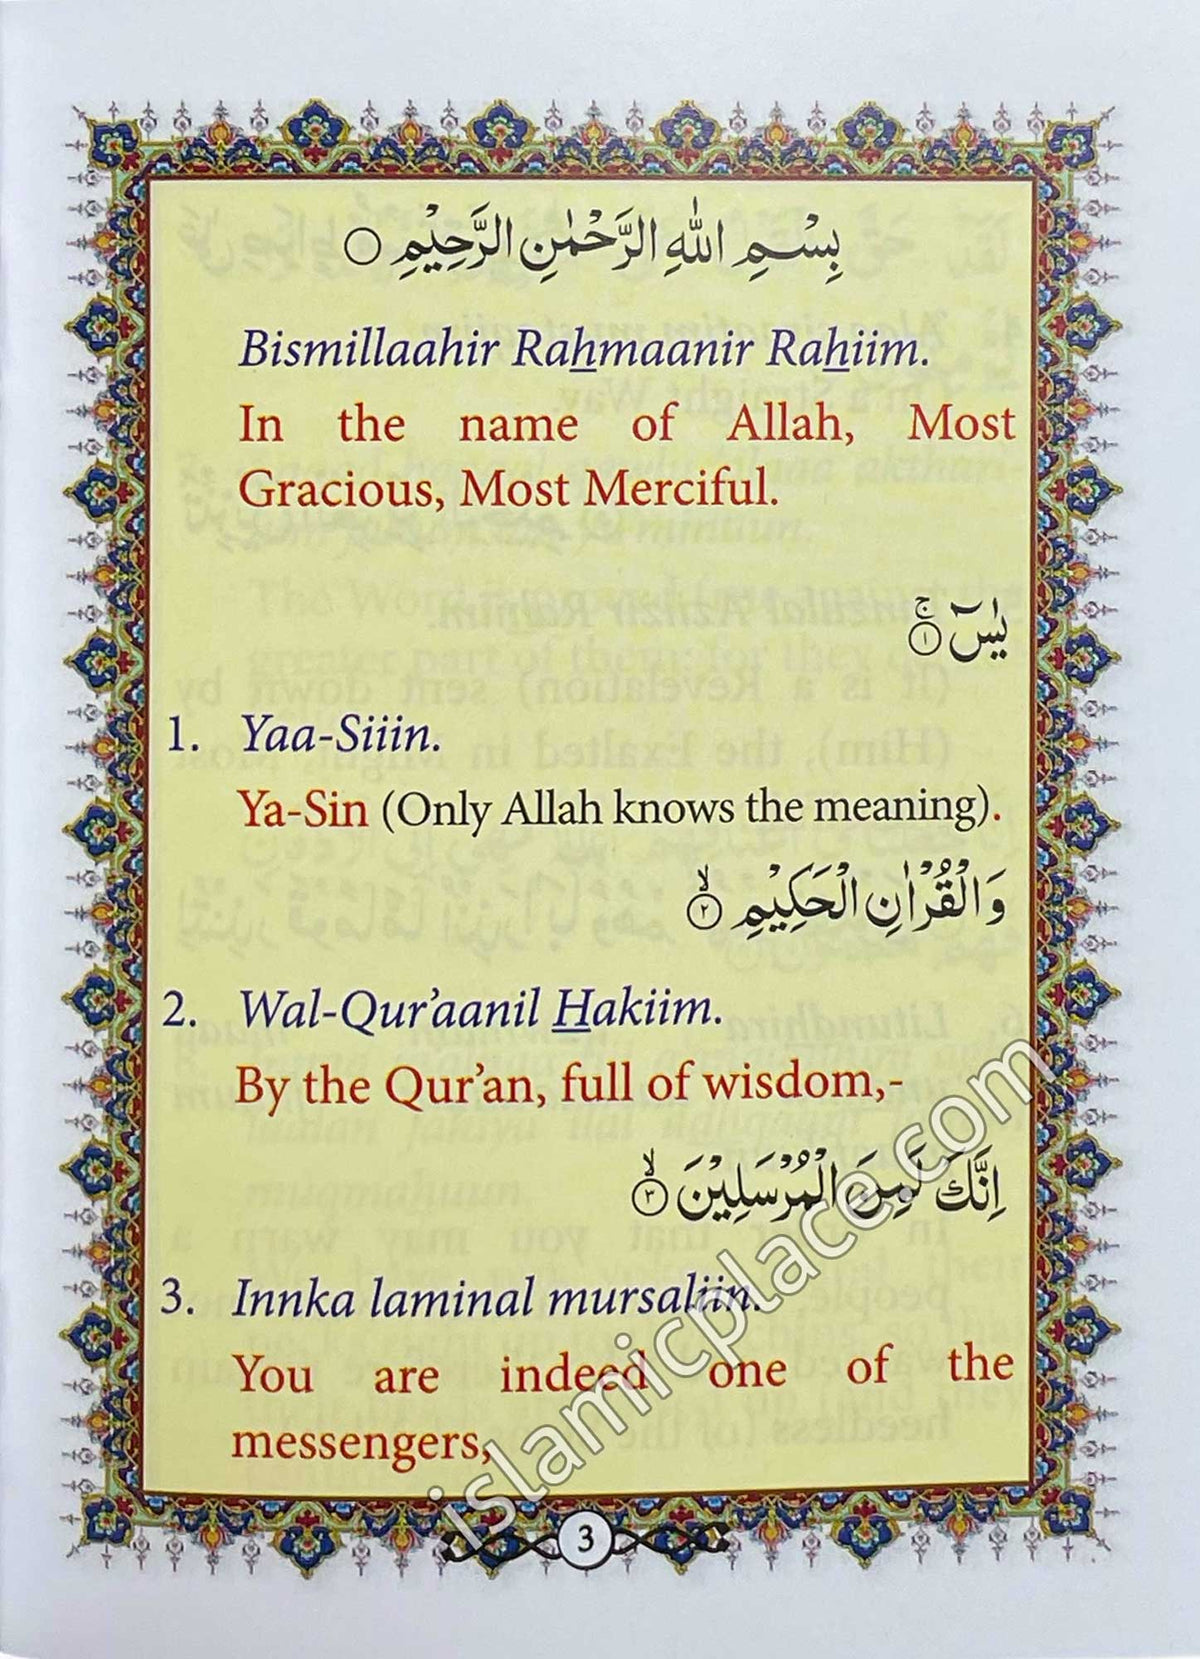 بِسْمِ اللهِ الرَّحْمٰنِ الرَّحِيْمِ ○
Bismillaahir Rahmaanir Rahiim.
In the name of Allah, Most
Gracious, Most Merciful.
يٰسٓ ۚ ﴿١﴾
1. Yaa-Siiin.
Ya-Sin (Only Allah knows the meaning).
وَالْقُرْاٰنِ الْحَكِيْمِ ۙ ﴿٢﴾
2. Wal-Qur’aanil Hakiim.
By the Qur’an, full of wisdom,-
اِنَّكَ لَمِنَ الْمُرْسَلِيْنَ ۙ ﴿٣﴾
3. Innka laminal mursaliin.
You are indeed one of the
messengers,
3
islamicplace.com